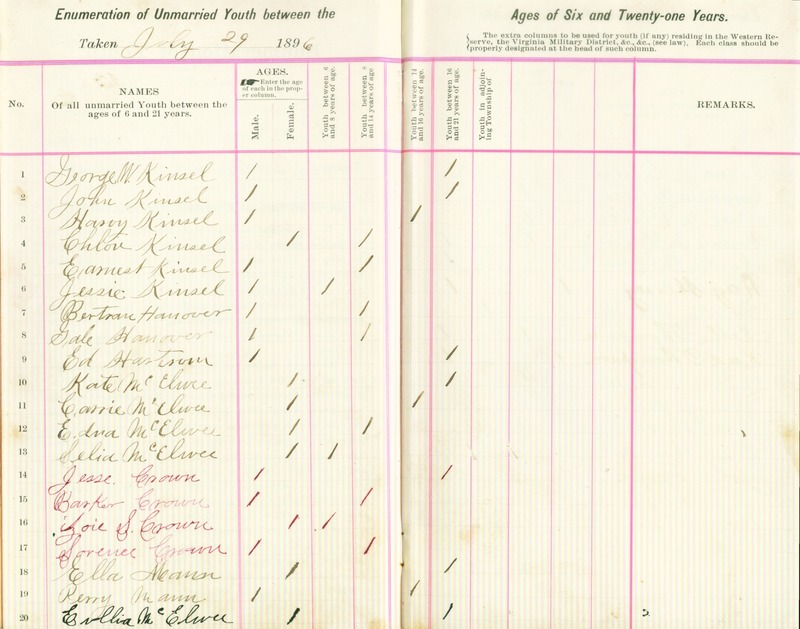 Enumeration of Unmarried Youth between the Ages of Six and Twenty-one Years.
Taken July 29 1896
The extra columns to be used for youth (if any) residing in the Western Re-
serve, the Virginia Military District, &c., &c., (see law). Each class should be
properly designated at the head of such column.
No.
NAMES
Of all unmarried Youth between the
ages of 6 and 21 years.
AGES.
Enter the age
of each in the prop-
er column.
Male.
Female.
Youth between 6
and 8 years of age.
Youth between 8
and 14 years of age.
Youth between 14
and 16 years of age.
Youth between 16
and 21 years of age.
Youth in adjoin-
ing Township of
REMARKS.
1 George W. Kinsel / /
2 John Kinsel / /
3 Harvy Kinsel / /
4 Chloe Kinsel / /
5 Earnest Kinsel / /
6 Jessie Kinsel / /
7 Bertran Hanover / /
8 Gale Hanover / /
9 Ed Hartrom / /
10 Kate McElwee / /
11 Carrie McElwee / /
12 Edna McElwee / /
13 Celia McElwee / /
14 Jesse. Crown / /
15 Barker Crown / /
16 Zoie S. Crown / /
17 Lorence Crown / /
18 Ella Mann / /
19 Perry Mann / /
20 McElwee / /